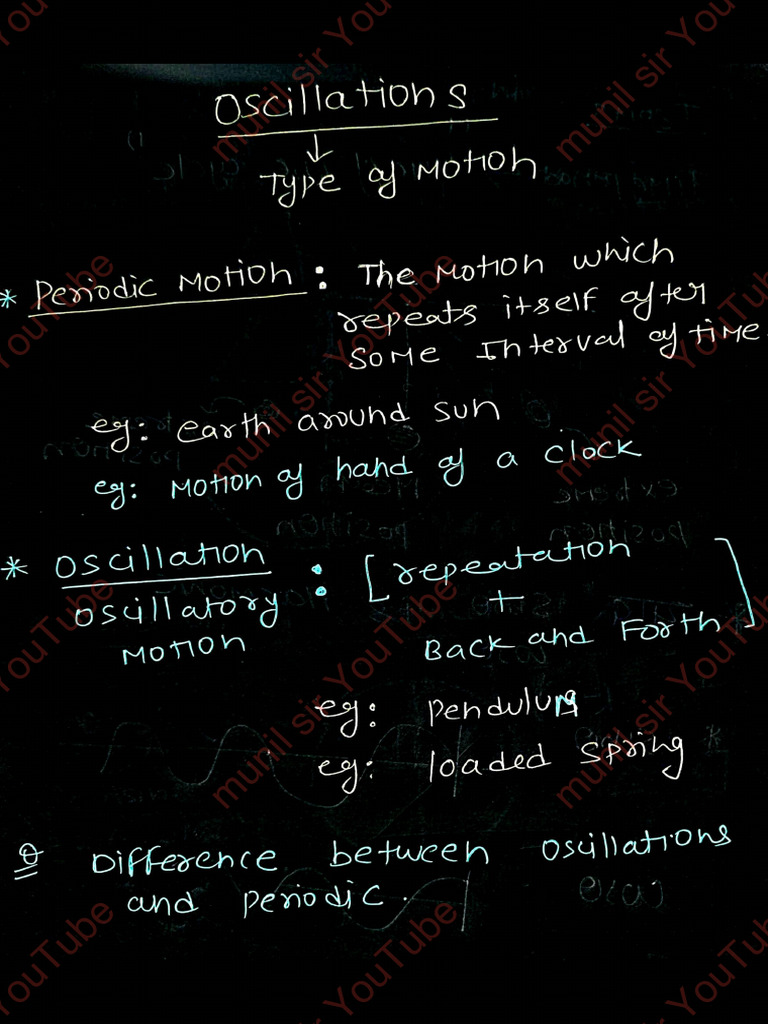 Oscillations
↓
Type of Motion
* Periodic Motion : The Motion which
repeats itself after
some Interval of time.
eg: earth around sun
eg: Motion of hand of a clock
* Oscillation
Oscillatory
Motion : [repeatation
+
Back and Forth]
eg: Pendulum
eg: loaded spring
Q Difference between oscillations
and periodic.
munil sir YouTube